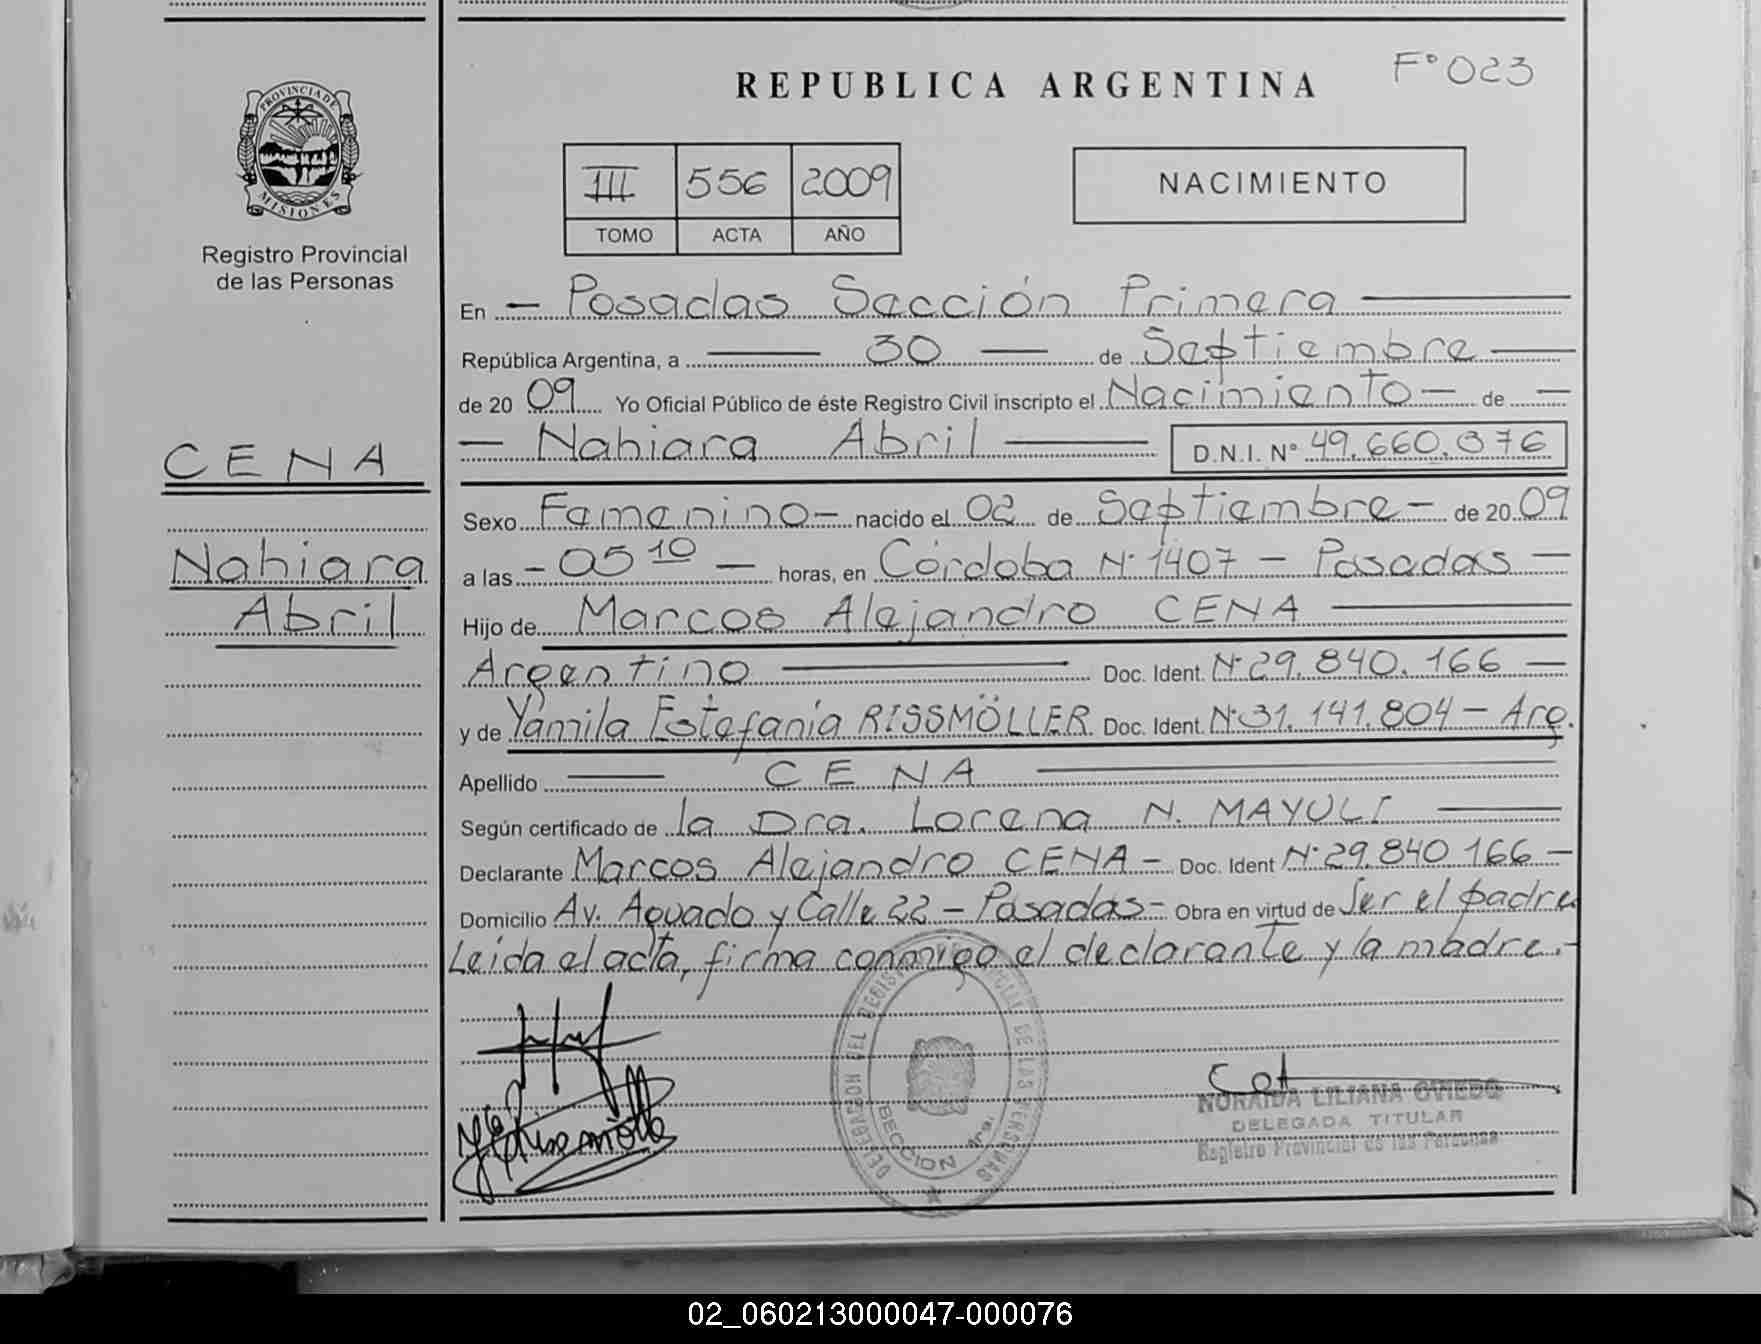 F° 023
REPUBLICA ARGENTINA
PROVINCIA DE
MISIONES
Registro Provincial
de las Personas
III 556 2009
TOMO ACTA AÑO
NACIMIENTO
En — Posadas Sección Primera —
República Argentina, a — 30 — de Septiembre —
de 20 09 Yo Oficial Público de éste Registro Civil inscripto el Nacimiento — de —
— Nahiara Abril — D.N.I. N° 49.660.376
CENA
Sexo Femenino — nacido el 02 de Septiembre — de 20 09
Nahiara
a las - 05 10 — horas, en Córdoba N° 1407 - Posadas —
Abril
Hijo de Marcos Alejandro CENA —
Argentino — Doc. Ident. N° 29.840.166 —
y de Yamila Estefanía RISSMÖLLER Doc. Ident. N° 31.141.804 - Arg.
Apellido — CENA —
Según certificado de la Dra. Lorena N. MAYULI —
Declarante Marcos Alejandro CENA - Doc. Ident N° 29.840 166 —
Domicilio Av. Aguado y Calle 22 - Posadas - Obra en virtud de Ser el padre
Leída el acta, firma conmigo el declarante y la madre.-
SECCION 1ra.
NORAIDA LILIANA OVIEDO
DELEGADA TITULAR
Registro Provincial de las Personas
02_060213000047-000076